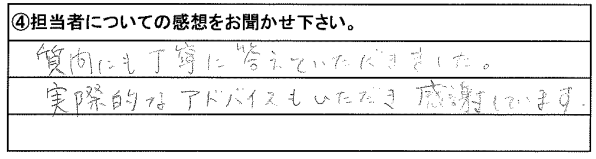 ④担当者についての感想をお聞かせ下さい。
質問にも丁寧に答えていただきました。
実際的なアドバイスもいただき感謝しています.